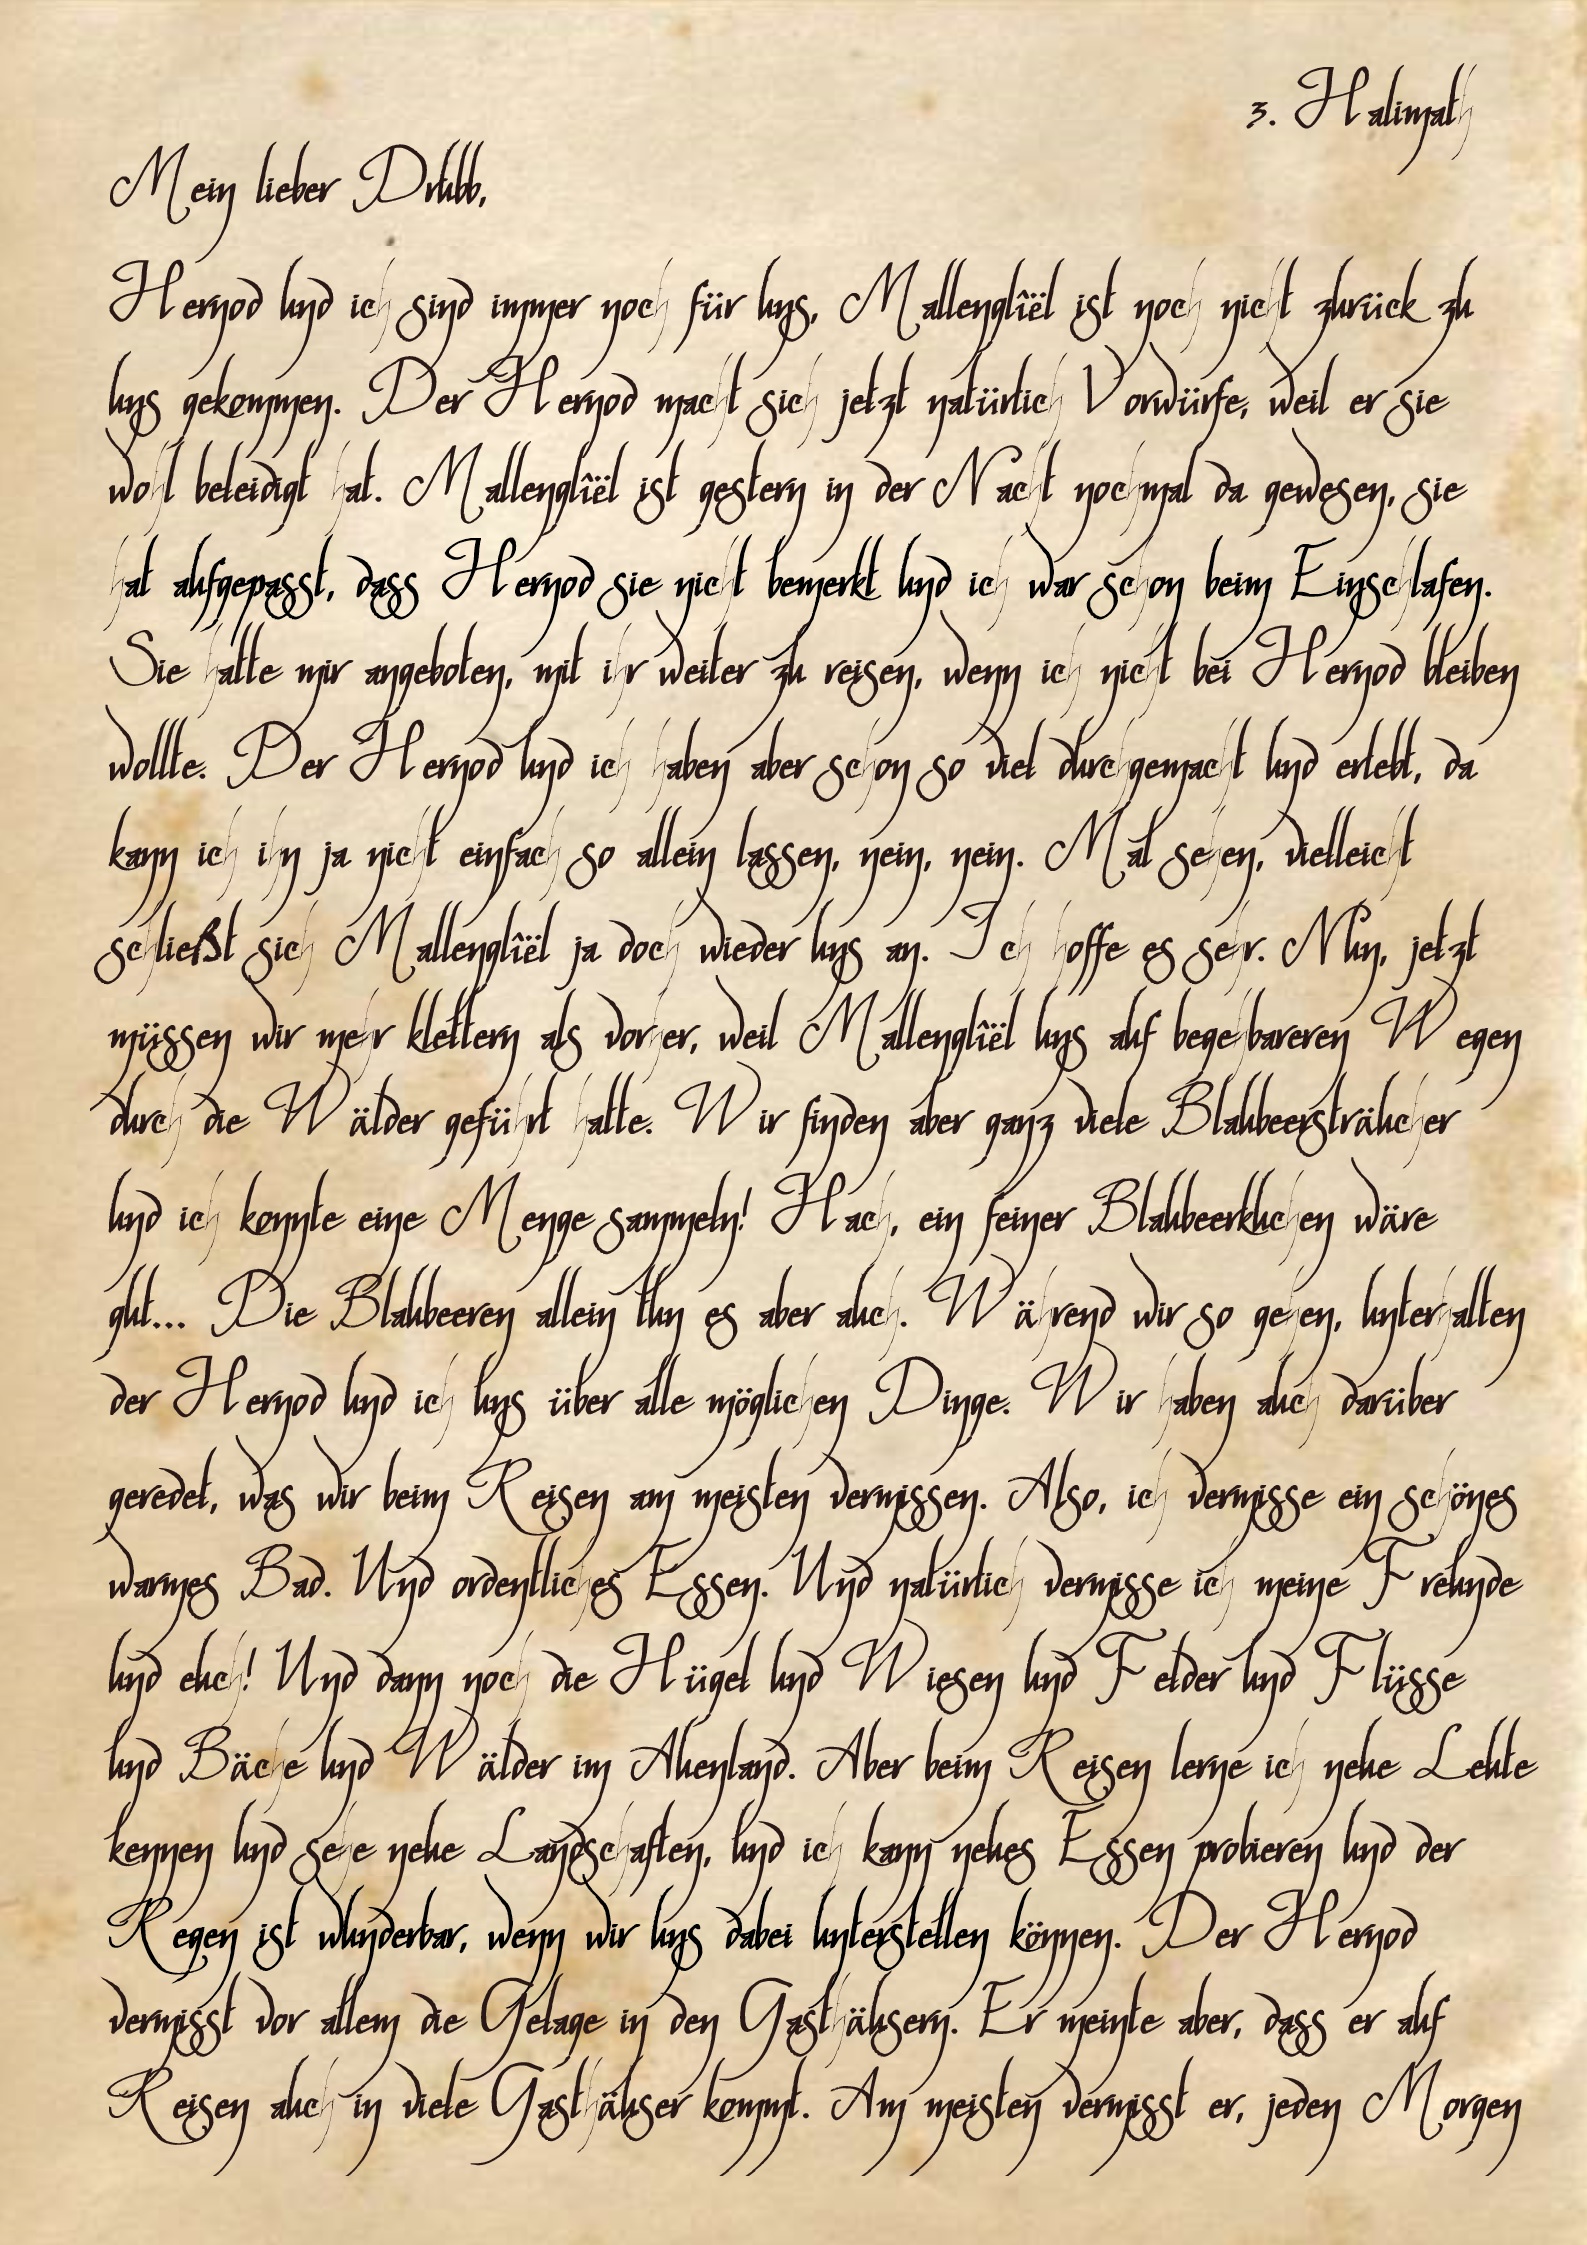 3. Halimath
Mein lieber Drubb,
Hernod und ich sind immer noch für uns, Mallenglîël ist noch nicht zurück zu
uns gekommen. Der Hernod macht sich jetzt natürlich Vorwürfe, weil er sie
wohl beleidigt hat. Mallenglîël ist gestern in der Nacht nochmal da gewesen, sie
hat aufgepasst, dass Hernod sie nicht bemerkt und ich war schon beim Einschlafen.
Sie hatte mir angeboten, mit ihr weiter zu reisen, wenn ich nicht bei Hernod bleiben
wollte. Der Hernod und ich haben aber schon so viel durchgemacht und erlebt, da
kann ich ihn ja nicht einfach so allein lassen, nein, nein. Mal sehen, vielleicht
schließt sich Mallenglîël ja doch wieder uns an. Ich hoffe es sehr. Nun, jetzt
müssen wir mehr klettern als vorher, weil Mallenglîël uns auf begehbareren Wegen
durch die Wälder geführt hatte. Wir finden aber ganz viele Blaubeersträucher
und ich konnte eine Menge sammeln! Hach, ein feiner Blaubeerkuchen wäre
gut... Die Blaubeeren allein tun es aber auch. Während wir so gehen, unterhalten
der Hernod und ich uns über alle möglichen Dinge. Wir haben auch darüber
geredet, was wir beim Reisen am meisten vermissen. Also, ich vermisse ein schönes
warmes Bad. Und ordentliches Essen. Und natürlich vermisse ich meine Freunde
und euch! Und dann noch die Hügel und Wiesen und Felder und Flüsse
und Bäche und Wälder im Auenland. Aber beim Reisen lerne ich neue Leute
kennen und sehe neue Landschaften, und ich kann neues Essen probieren und der
Regen ist wunderbar, wenn wir uns dabei unterstellen können. Der Hernod
vermisst vor allem die Gelage in den Gasthäusern. Er meinte aber, dass er auf
Reisen auch in viele Gasthäuser kommt. Am meisten vermisst er, jeden Morgen